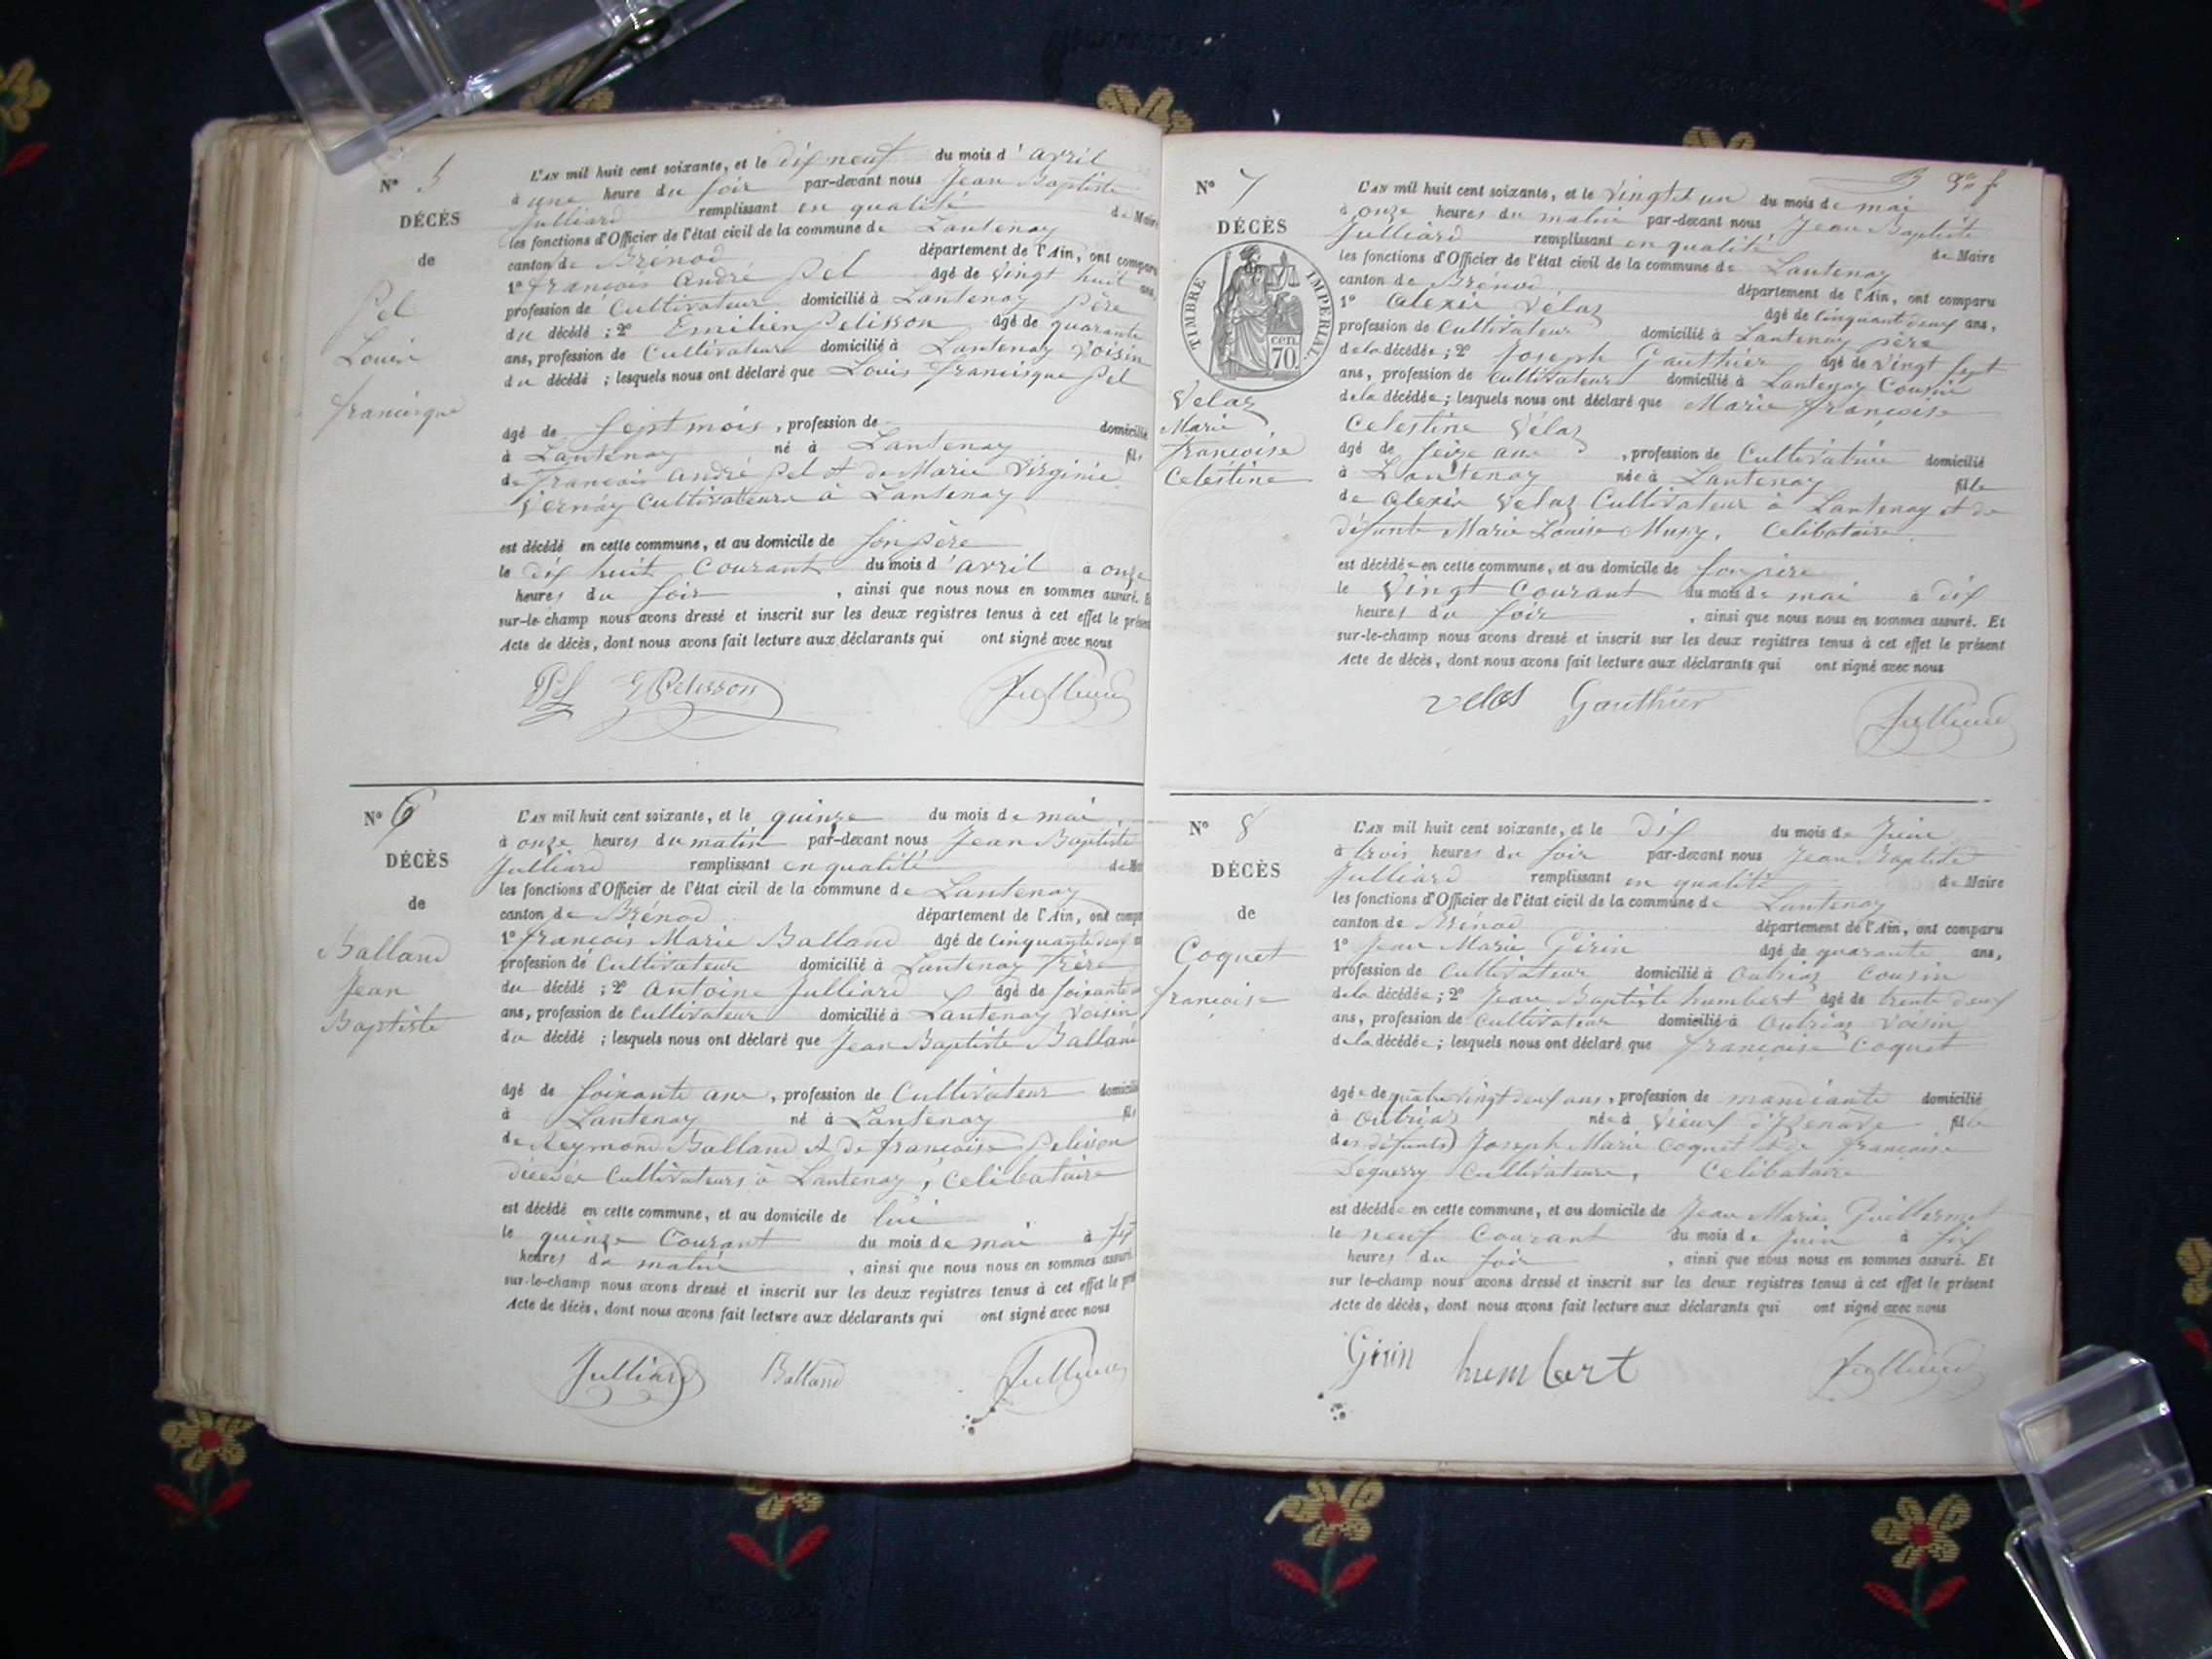 N° 5
DÉCÈS
de
Pel
Louis
francisque
L'AN mil huit cent soixante, et le dix neuf du mois d'avril
à une heure du soir par-devant nous Jean Baptiste
Julliard remplissant en qualité de Maire
les fonctions d'Officier de l'état civil de la commune de Lantenay
canton de Brénod département de l'Ain, ont comparu
1° françois andré Pel âgé de vingt huit ans,
profession de Cultivateur domicilié à Lantenay Père
du décédé ; 2° Emilien Pelisson âgé de quarante
ans, profession de Cultivateur domicilié à Lantenay Voisin
du décédé ; lesquels nous ont déclaré que Louis francisque Pel
âgé de sept mois, profession de domicilié
à Lantenay né à Lantenay fils
de françois andré Pel et de Marie Virginie
Vernay Cultivateurs à Lantenay
est décédé en cette commune, et au domicile de son père
le dix huit Courant du mois d'avril à onze
heures du soir, ainsi que nous nous en sommes assuré. E
sur-le-champ nous avons dressé et inscrit sur les deux registres tenus à cet effet le présen
Acte de décès, dont nous avons fait lecture aux déclarants qui ont signé avec nous
Pel E Pelisson Julliard
N° 6
DÉCÈS
de
Balland
Jean
Baptiste
L'AN mil huit cent soixante, et le quinze du mois de mai
à onze heures du matin par-devant nous Jean Baptiste
Julliard remplissant en qualité de Ma
les fonctions d'Officier de l'état civil de la commune de Lantenay
canton de Brénod département de l'Ain, ont compa
1° françois Marie Balland âgé de cinquante deux
profession de Cultivateur domicilié à Lantenay frère
du décédé ; 2° antoine Julliard âgé de soixante
ans, profession de Cultivateur domicilié à Lantenay Voisin
du décédé ; lesquels nous ont déclaré que Jean Baptiste Balland
âgé de soixante ans, profession de Cultivateur domicilié
à Lantenay né à Lantenay fils
de Reymond Balland et de françoise Pelisson
décédés Cultivateurs à Lantenay, Celibataire
est décédé en cette commune, et au domicile de lui
le quinze Courant du mois de mai à
heures du matin, ainsi que nous nous en sommes assuré.
sur-le-champ nous avons dressé et inscrit sur les deux registres tenus à cet effet le pré
Acte de décès, dont nous avons fait lecture aux déclarants qui ont signé avec nous
Julliard Balland Julliard
N° 7
DÉCÈS
TIMBRE IMPERIAL
cen. 70.
Velaz
Marie
francoise
Celestine
L'AN mil huit cent soixante, et le vingt et un du mois de mai
à onze heures du matin par-devant nous Jean Baptiste
Julliard remplissant en qualité de Maire
les fonctions d'Officier de l'état civil de la commune de Lantenay
canton de Brénod département de l'Ain, ont comparu
1° alexis Vélaz âgé de cinquant deux ans,
profession de Cultivateur domicilié à Lantenay père
de la décédée ; 2° Joseph Gauthier âgé de vingt sept
ans, profession de cultivateur domicilié à Lantenay Cousin
de la décédée ; lesquels nous ont déclaré que Marie françoise
Celestine Vélaz
âgé de seize ans, profession de Cultivatrice domicilié
à Lantenay née à Lantenay fille
de alexis Velaz Cultivateur à Lantenay et de
défunte Marie Louise Musy, Celibataire
est décédée en cette commune, et au domicile de son père
le vingt Courant du mois de mai à dix
heures du soir, ainsi que nous nous en sommes assuré. Et
sur-le-champ nous avons dressé et inscrit sur les deux registres tenus à cet effet le présent
Acte de décès, dont nous avons fait lecture aux déclarants qui ont signé avec nous
velas Gauthier Julliard
N° 8
DÉCÈS
de
Coquet
francoise
L'AN mil huit cent soixante, et le dix du mois de Juin
à trois heures du soir par-devant nous Jean Baptiste
Julliard remplissant en qualité de Maire
les fonctions d'Officier de l'état civil de la commune de Lantenay
canton de Brénod département de l'Ain, ont comparu
1° Jean Marie Girin âgé de quarante ans,
profession de Cultivateur domicilié à Outriaz cousin
de la décédée ; 2° Jean Baptiste humbert âgé de trente deux
ans, profession de Cultivateur domicilié à Outriaz Voisin
de la décédée ; lesquels nous ont déclaré que françoise Coquet
âgée de quatre vingt deux ans, profession de mandiante domicilié
à Outriaz née à Vieux d'Izenave fille
des défunts Joseph Marie Coquet et de françoise
Cultivateurs, Celibataire
est décédée en cette commune, et au domicile de Jean Marie Guillermet
le neuf Courant du mois de Juin à six
heures du soir, ainsi que nous nous en sommes assuré. Et
sur le-champ nous avons dressé et inscrit sur les deux registres tenus à cet effet le présent
Acte de décès, dont nous avons fait lecture aux déclarants qui ont signé avec nous
Girin humbert Julliard